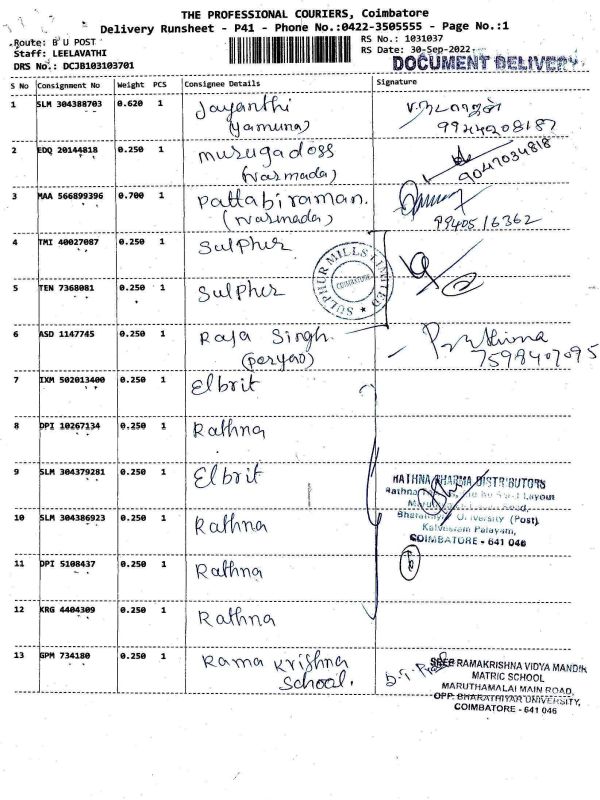 THE PROFESSIONAL COURIERS, Coimbatore
Delivery Runsheet - P41 - Phone No.:0422-3505555 - Page No.:1
Route: B U POST
Staff: LEELAVATHI
DRS No.: DCJB103103701
RS No.: 1031037
RS Date: 30-Sep-2022
DOCUMENT DELIVERY
S No Consignment No Weight PCS Consignee Details Signature
1 SLM 304388703 0.620 1 Jayanthi
(Yamuna)
9944208187
2 EDQ 20144818 0.250 1 Murugadoss
(Narmada)
9047034818
3 MAA 566899396 0.700 1 Pattabiraman.
(Narmada)
9940516362
4 TMI 40027087 0.250 1 Sulphur
SULPHUR MILLS LIMITED
COIMBATORE
5 TEN 7368081 0.250 1 Sulphur
2
6 ASD 1147745 0.250 1 Raja Singh.
(Periyar)
7598407095
7 IXM 502013400 0.250 1 Elbrit
8 DPI 10267134 0.250 1 Rathna
9 SLM 304379281 0.250 1 Elbrit
RATHNA PHARMA DISTRIBUTORS
Layout
Bharathiyar University (Post)
Kalveeram Palayam,
COIMBATORE - 641 046
10 SLM 304386923 0.250 1 Rathna
11 DPI 5108437 0.250 1 Rathna
6
12 KRG 4404309 0.250 1 Rathna
13 GPM 734180 0.250 1 Rama Krishna
School.
SREE RAMAKRISHNA VIDYA MANDIR
MATRIC SCHOOL
MARUTHAMALAI MAIN ROAD,
OPP. BHARATHIYAR UNIVERSITY,
COIMBATORE - 641 046